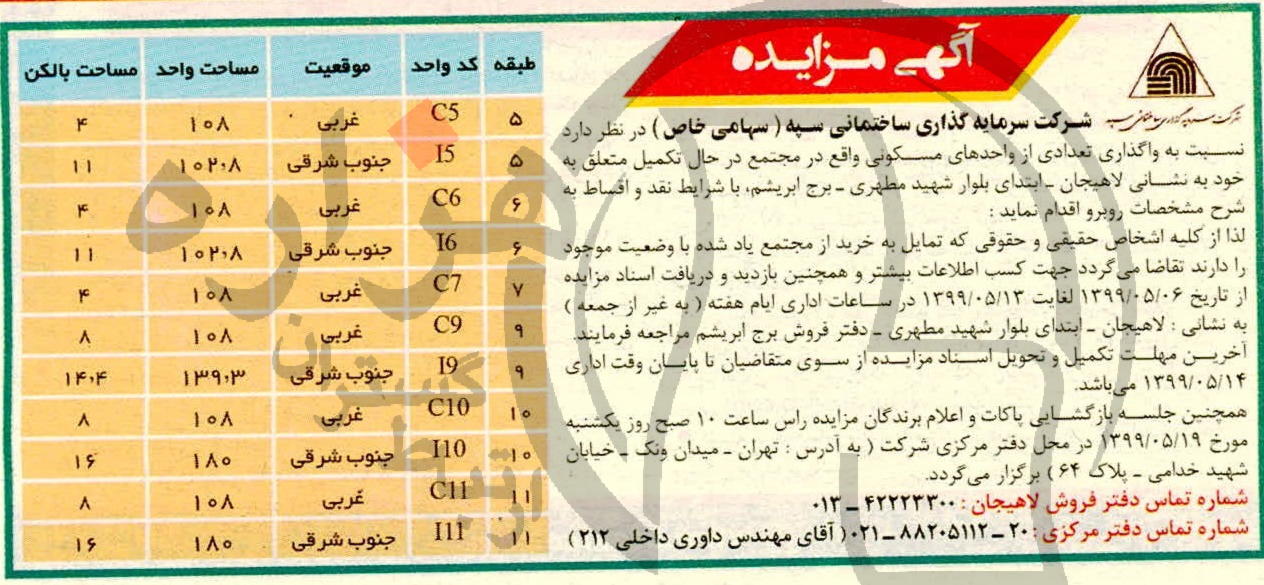 آگهی مزایده
شرکت سرمایه گذاری ساختمانی سپه
شرکت سرمایه گذاری ساختمانی سپه ( سهامی خاص ) در نظر دارد
نسبت به واگذاری تعدادی از واحدهای مسکونی واقع در مجتمع در حال تکمیل متعلق به
خود به نشانی لاهیجان ـ ابتدای بلوار شهید مطهری ـ برج ابریشم، با شرایط نقد و اقساط به
شرح مشخصات روبرو اقدام نماید :
لذا از کلیه اشخاص حقیقی و حقوقی که تمایل به خرید از مجتمع یاد شده با وضعیت موجود
را دارند تقاضا می‌گردد جهت کسب اطلاعات بیشتر و همچنین بازدید و دریافت اسناد مزایده
از تاریخ ۱۳۹۹/۰۵/۰۶ لغایت ۱۳۹۹/۰۵/۱۳ در ساعات اداری ایام هفته ( به غیر از جمعه )
به نشانی : لاهیجان ـ ابتدای بلوار شهید مطهری ـ دفتر فروش برج ابریشم مراجعه فرمایند.
آخرین مهلت تکمیل و تحویل اسناد مزایده از سوی متقاضیان تا پایان وقت اداری
۱۳۹۹/۰۵/۱۴ می‌باشد.
همچنین جلسه بازگشایی پاکات و اعلام برندگان مزایده راس ساعت ۱۰ صبح روز یکشنبه
مورخ ۱۳۹۹/۰۵/۱۹ در محل دفتر مرکزی شرکت ( به آدرس : تهران ـ میدان ونک ـ خیابان
شهید خدامی ـ پلاک ۶۴ ) برگزار می‌گردد.
شماره تماس دفتر فروش لاهیجان : ۴۲۲۲۳۳۰۰ ـ ۰۱۳
شماره تماس دفتر مرکزی : ۲۰ ـ ۸۸۲۰۵۱۱۲ ـ ۰۲۱ ( آقای مهندس داوری داخلی ۲۱۲ )
طبقه کد واحد موقعیت مساحت واحد مساحت بالکن
۵ C5 غربی ۱۰۸ ۴
۵ I5 جنوب شرقی ۱۰۲،۸ ۱۱
۶ C6 غربی ۱۰۸ ۴
۶ I6 جنوب شرقی ۱۰۲،۸ ۱۱
۷ C7 غربی ۱۰۸ ۴
۹ C9 غربی ۱۰۸ ۸
۹ I9 جنوب شرقی ۱۳۹،۳ ۱۴،۴
۱۰ C10 غربی ۱۰۸ ۸
۱۰ I10 جنوب شرقی ۱۸۰ ۱۶
۱۱ C11 غربی ۱۰۸ ۸
۱۱ I11 جنوب شرقی ۱۸۰ ۱۶
هزاره
گستران
ارتباط